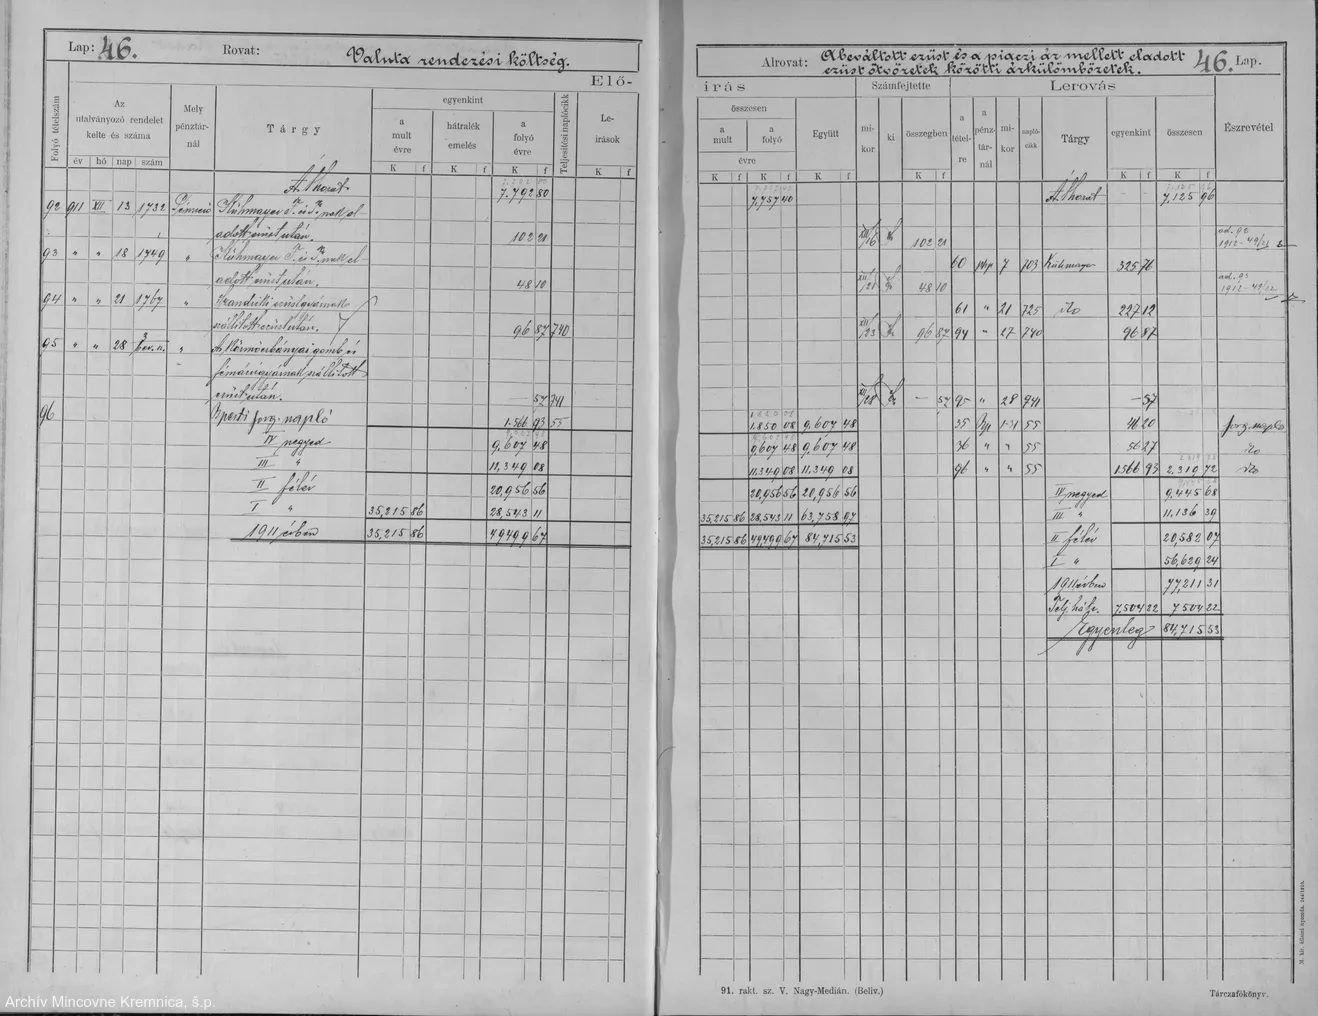 Lap: 46.
Rovat: Valuta rendezési költség.
Elő-
Folyó tételszám
Az utalványozó rendelet kelte és száma
év hó nap szám
Mely pénztárnál
Tárgy
egyenkint
a mult évre
hátralék emelés
a folyó évre
Teljesítési naplócikk
Leírások
K f K f K f K f
Áthozat 7,792 80
92 911 XII 13 1732 Kühmayer F. és T.nak el-
adott ezüst után. 102 21
93 " " 18 1749 " Kühmayer F. és T.nak el-
adott ezüst után. 48 10
94 " " 21 1767 "
szállított ezüst után. 96 87 740
95 " " 28 " A Körmöczbányai gomb és
fémárúgyárnak szállított
ezüst után. 57 741
96 Bpesti forg. napló 1,566 93 55
IV negyed 9,607 48
III " 11,349 08
II félév 20,956 56
I " 35,215 86 28,543 11
1911 évben 35,215 86 49499 67
Alrovat: A beváltott ezüst és a piaczi ár mellett eladott
ezüst ötvözetek közötti árkülömbözetek.
46. Lap.
írás
Számfejtette
Lerovás
összesen
a mult a folyó
évre
Együtt
mikor
ki
összegben
a tételre
a pénztárnál
mikor
naplócikk
Tárgy
egyenkint
összesen
Észrevétel
K f K f K f K f K f K f
7,757 40 Áthozat - - 7,125 96
XII/16 102 21
1912-49/21
60 7 703 Kühmayer 325 76
XII/21 48 10
1912-49/22
61 " 21 725 dto 227 12
XII/23 96 87 94 " 27 740 96 87
XII/28 - 57 95 " 28 741 - 57
1,850 08 9,607 48 35 Bp. 1-31 55 46 20 forg. napló
9,607 48 9,607 48 36 " " 55 56 27 dto
11,349 08 11,349 08 96 " " 55 1566 93 2,319 72 dto
20,956 56 20,956 56 IV negyed 9,445 68
35,215 86 28,543 11 63,758 97 III " 11,136 39
35,215 86 49499 67 84,715 53 II félév 20,582 07
I " 56,629 24
1911 évben 77,211 31
Telj. hátr. 7,504 22 7504 22
Egyenleg 84,715 53
91. rakt. sz. V. Nagy-Medián. (Beliv.)
Tárczafőkönyv.
Archív Mincovne Kremnica, š.p.